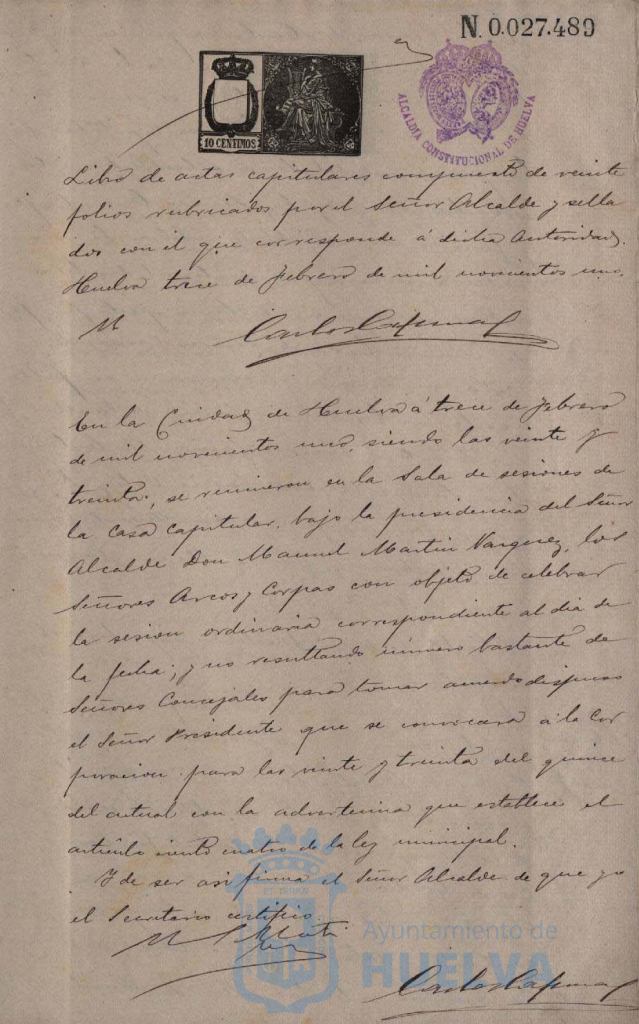 N. 0.027.489
10 CENTIMOS
ALCALDIA CONSTITUCIONAL DE HUELVA
Libro de actas capitulares compuesto de veinte
folios rubricados por el Señor Alcalde y sella
dos con el que corresponde á dicha Autoridad.
Huelva trece de febrero de mil novecientos uno.
En la Ciudad de Huelva á trece de febrero
de mil novecientos uno, siendo las veinte y
treinta, se reunieron en la Sala de sesiones de
la Casa Capitular, bajo la presidencia del Señor
Alcalde Don Manuel Martin Vazquez, los
Señores Arcos y Corpas con objeto de celebrar
la sesion ordinaria correspondiente al dia de
la fecha; y no resultando número bastante de
Señores Concejales para tomar acuerdo dispuso
el Señor Presidente que se convocara á la Cor
poracion para las veinte y treinta del quince
del actual con la advertencia que establece el
articulo ciento cuatro de la ley municipal.
Y de ser asi firma el Señor Alcalde de que yo
el Secretario certifico.
Ayuntamiento de
HUELVA